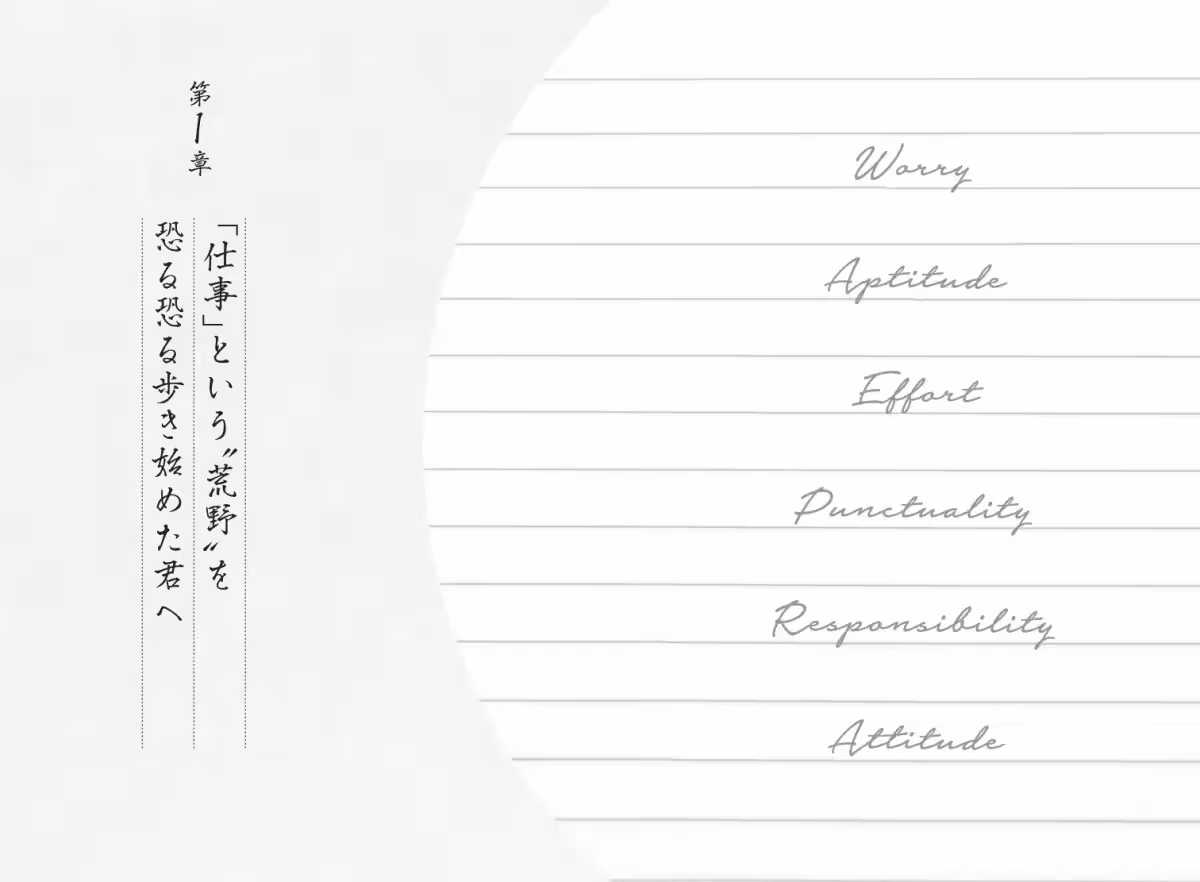 第1章
「仕事」という〝荒野〟を
恐る恐る歩き始めた君へ
Worry
Aptitude
Effort
Punctuality
Responsibility
Attitude